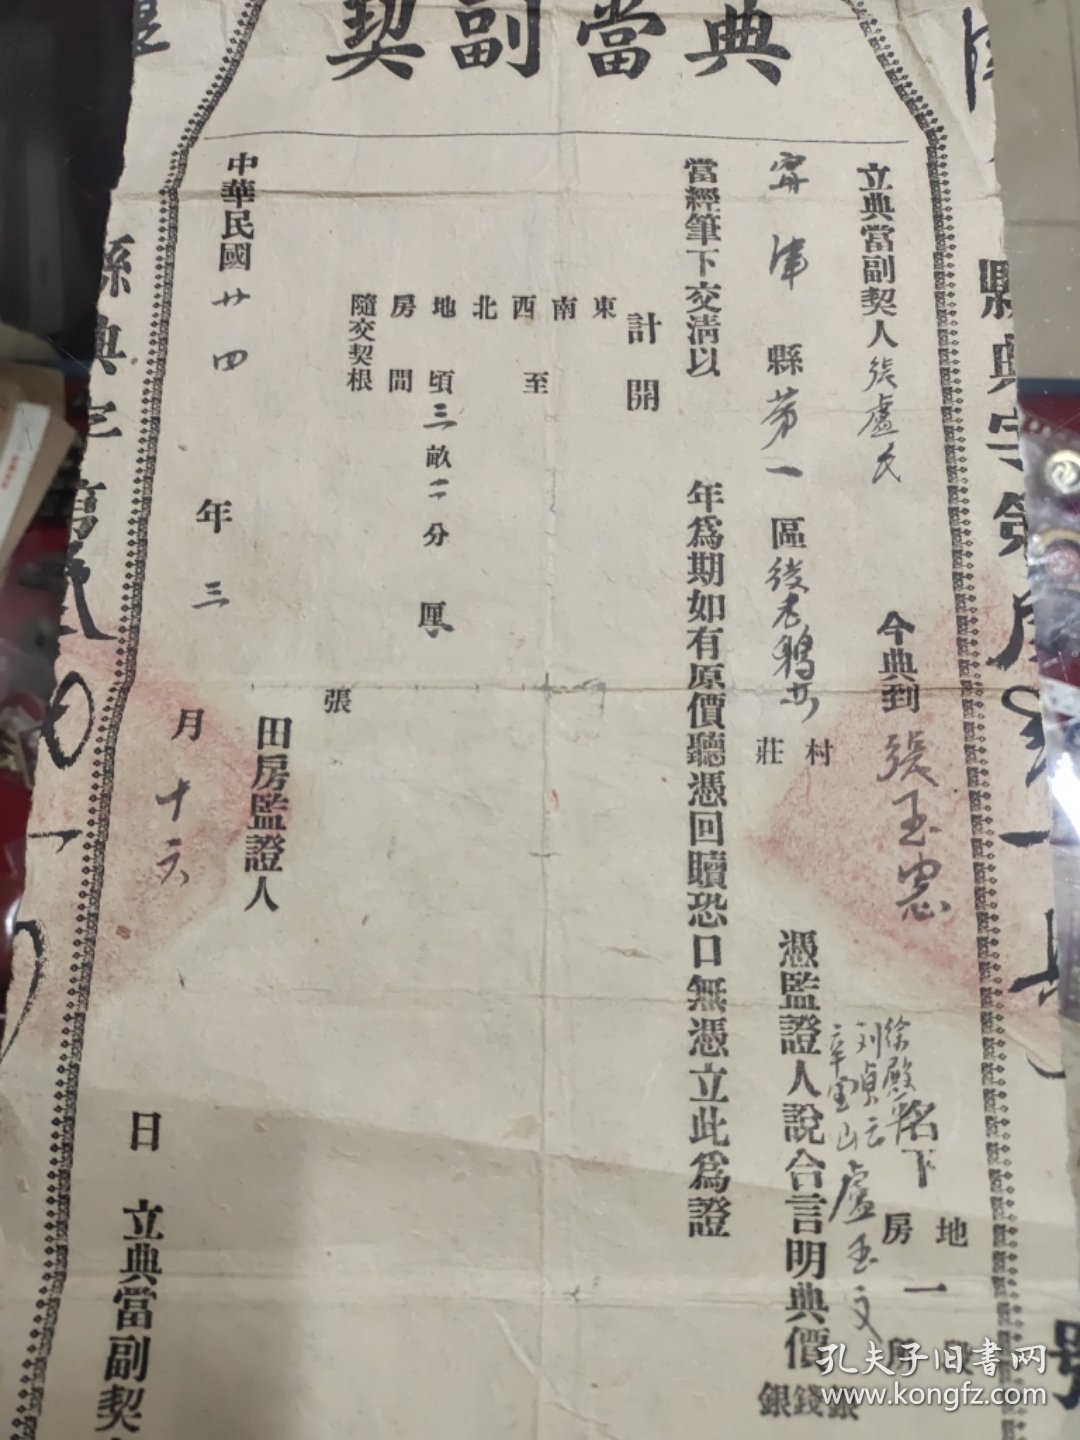 典當副契
立典當副契人張盧氏
今典到張玉忠
名下
地
房
一
憑監證人說合言明典價
徐殿
刘貞云
盧玉文
銀錢銀
寧津縣第一區後老鴉
村
莊
當經筆下交清以
年為期如有原價聽憑回贖恐口無憑立此為證
計開
東
南
西至
北
地頃三畝二分厘
房間
隨交契根
張
田房監證人
中華民國廿四年三月十六日
立典當副契
縣典字第
號
縣典字
孔夫子旧書网
www.kongfz.com